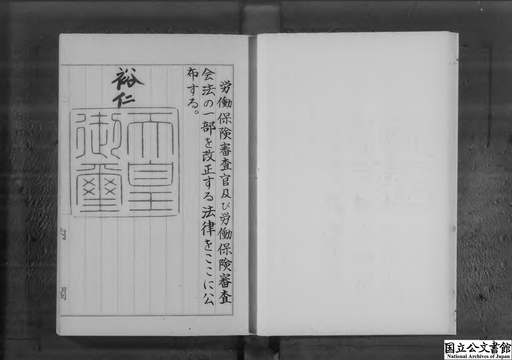 労働保険審査官及び労働保険審査
会法の一部を改正する法律をここに公
布する。
裕仁
天皇
御璽
内閣
国立公文書館
National Archives of Japan